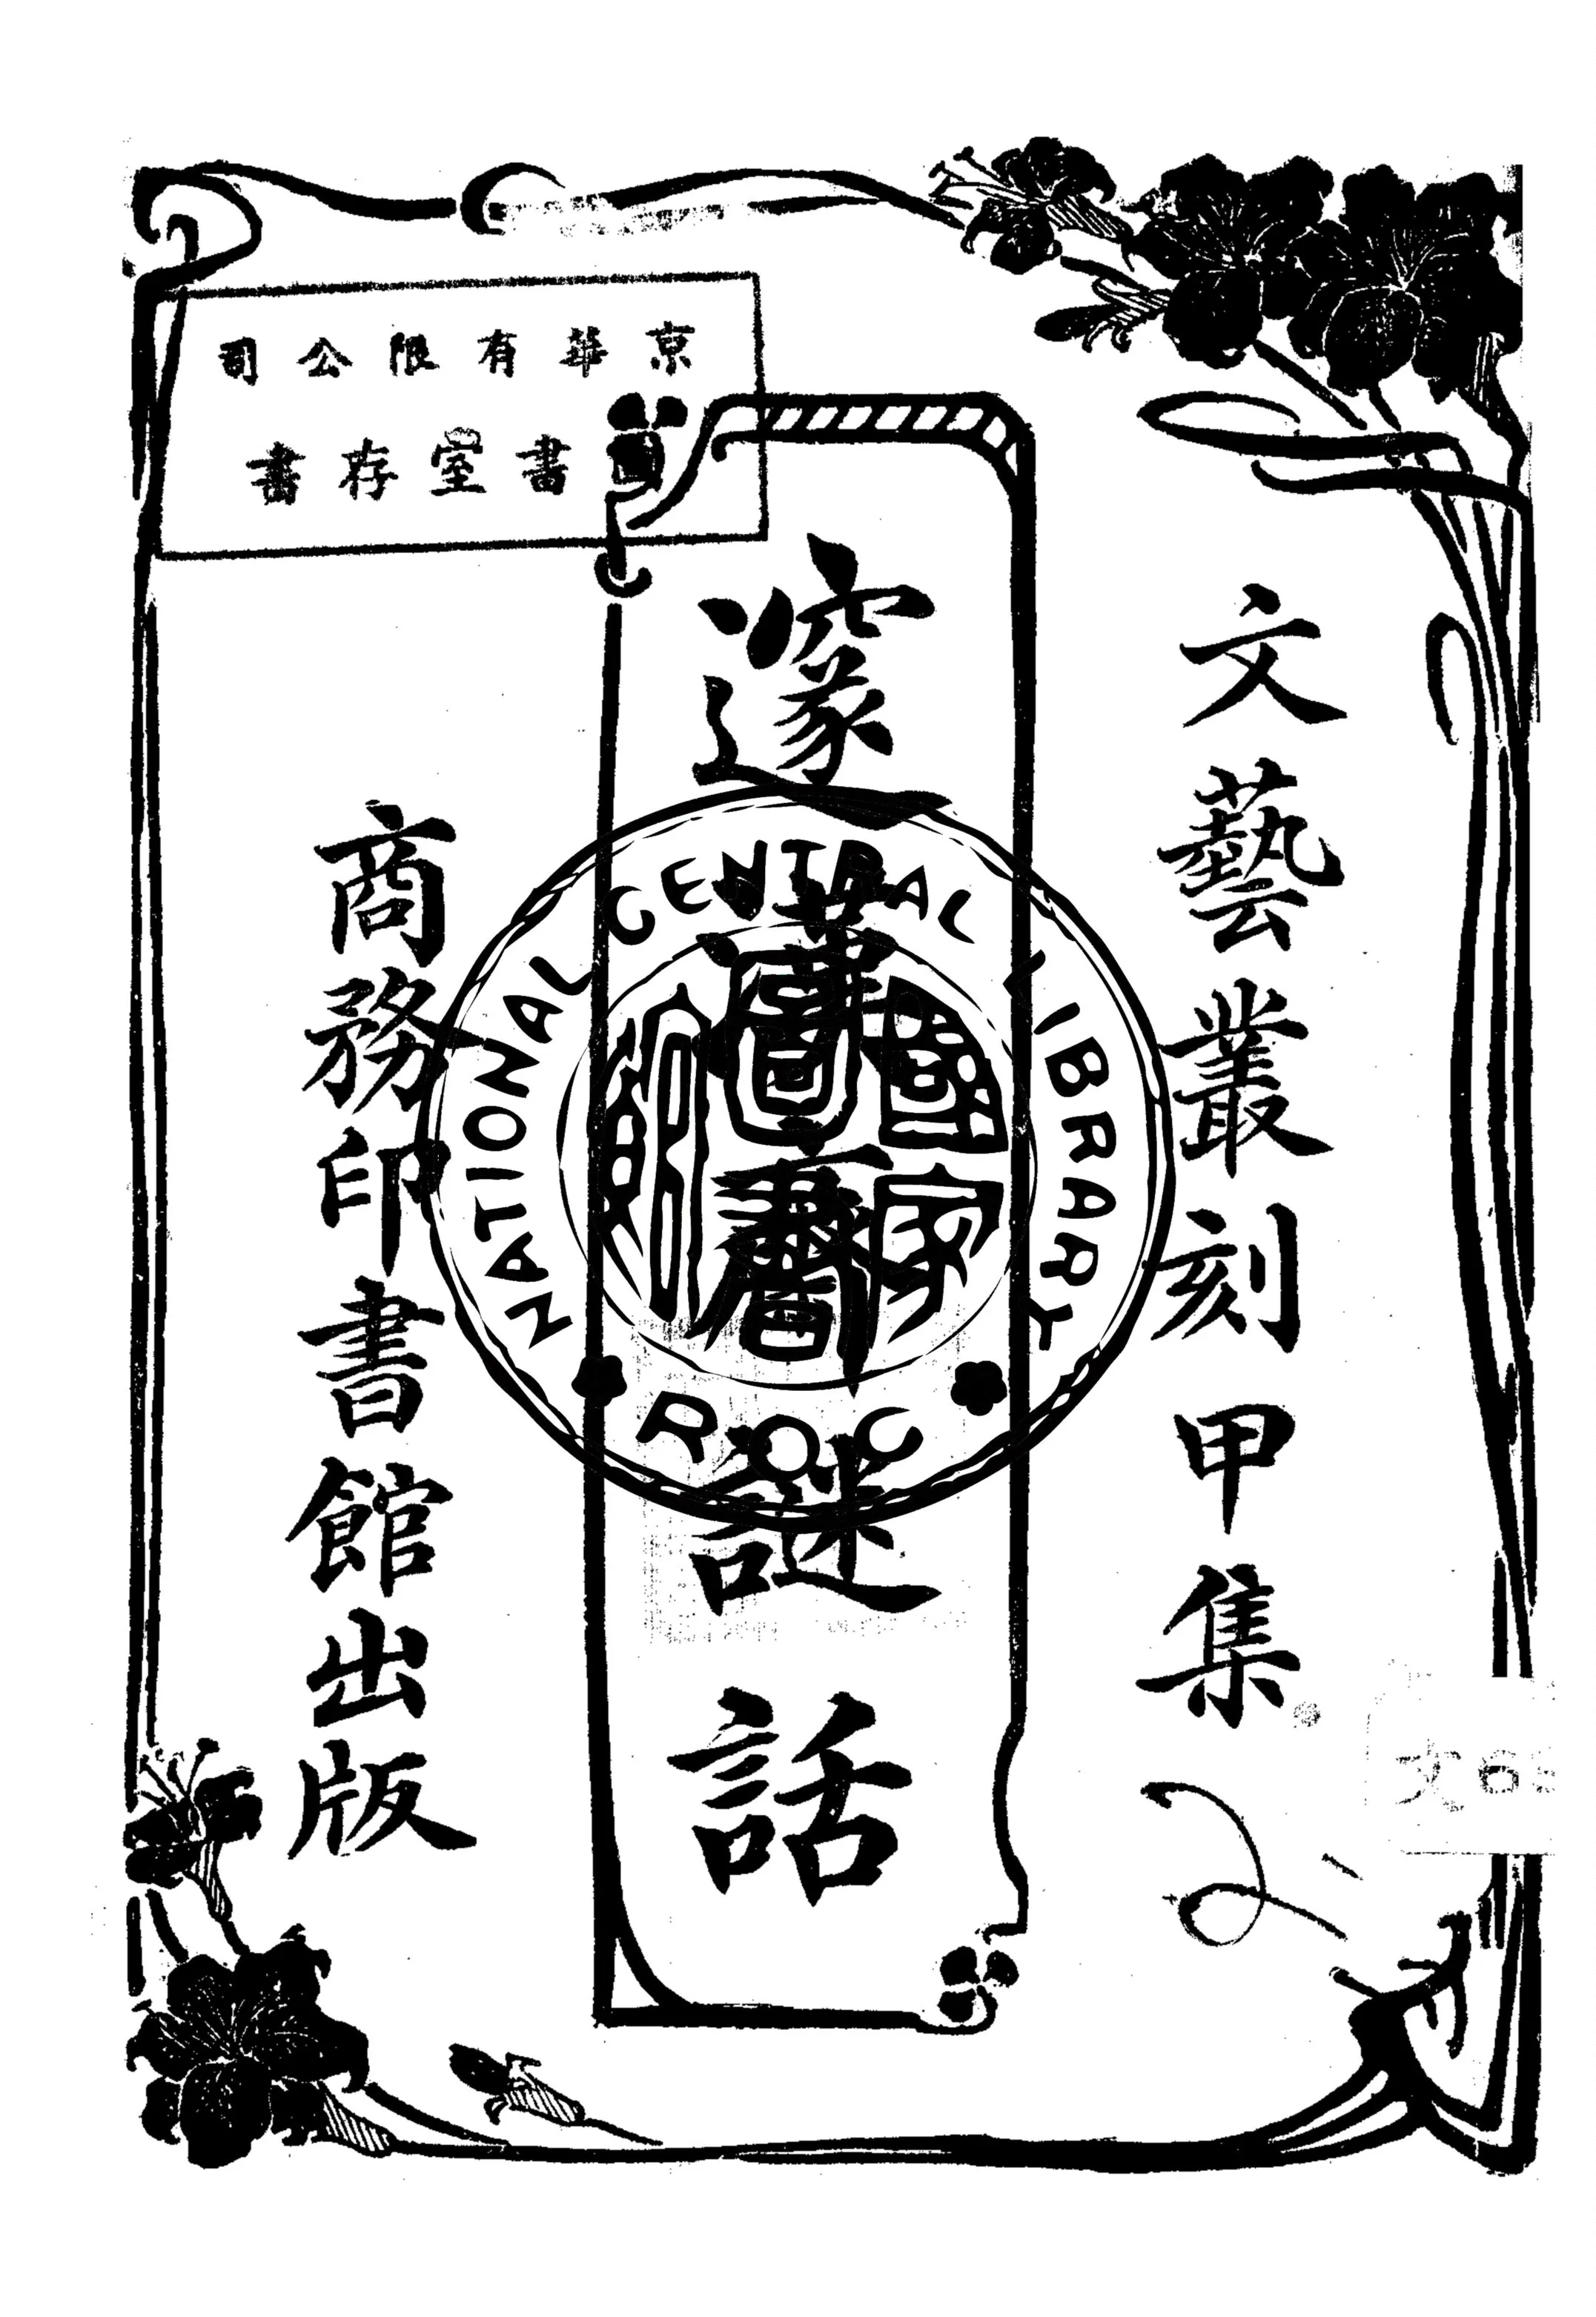 文藝叢刻甲集
邃漢齋謎話
商務印書館出版
京華有限公司
圖書室存書
NATIONAL CENTRAL LIBRARY
R.O.C
國家圖書館